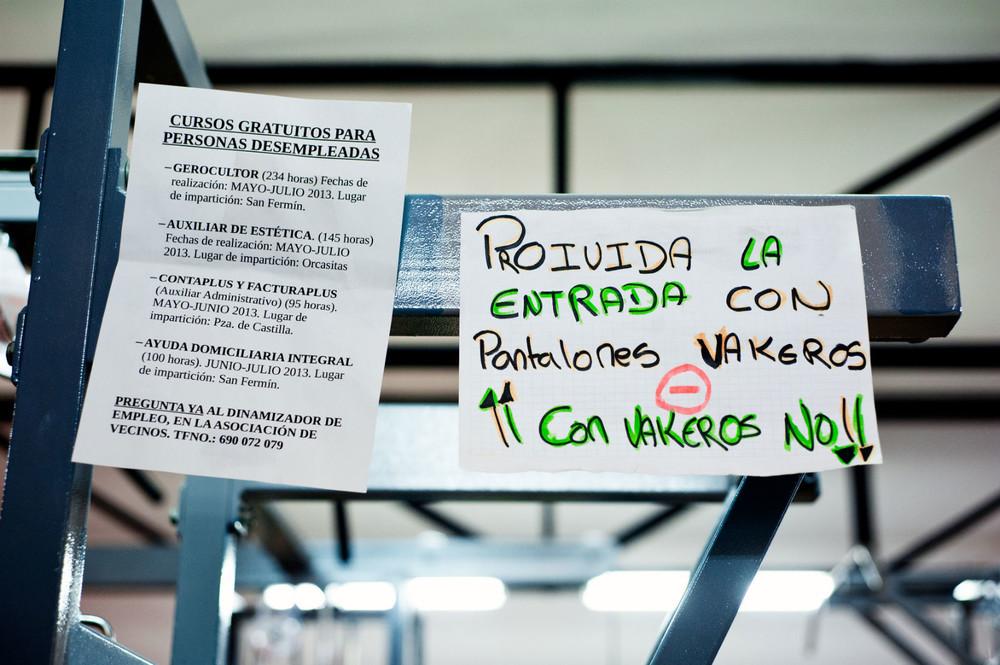 CURSOS GRATUITOS PARA
PERSONAS DESEMPLEADAS
–GEROCULTOR (234 horas) Fechas de
realización: MAYO-JULIO 2013. Lugar
de impartición: San Fermín.
–AUXILIAR DE ESTÉTICA. (145 horas)
Fechas de realización: MAYO-JULIO
2013. Lugar de impartición: Orcasitas
–CONTAPLUS Y FACTURAPLUS
(Auxiliar Administrativo) (95 horas).
MAYO-JUNIO 2013. Lugar de
impartición: Pza. de Castilla.
–AYUDA DOMICILIARIA INTEGRAL
(100 horas). JUNIO-JULIO 2013. Lugar
de impartición: San Fermín.
PREGUNTA YA AL DINAMIZADOR DE
EMPLEO, EN LA ASOCIACIÓN DE
VECINOS. TFNO.: 690 072 079
PROIVIDA LA
ENTRADA CON
Pantalones VAKEROS
¡¡ Con VAKEROS NO!!